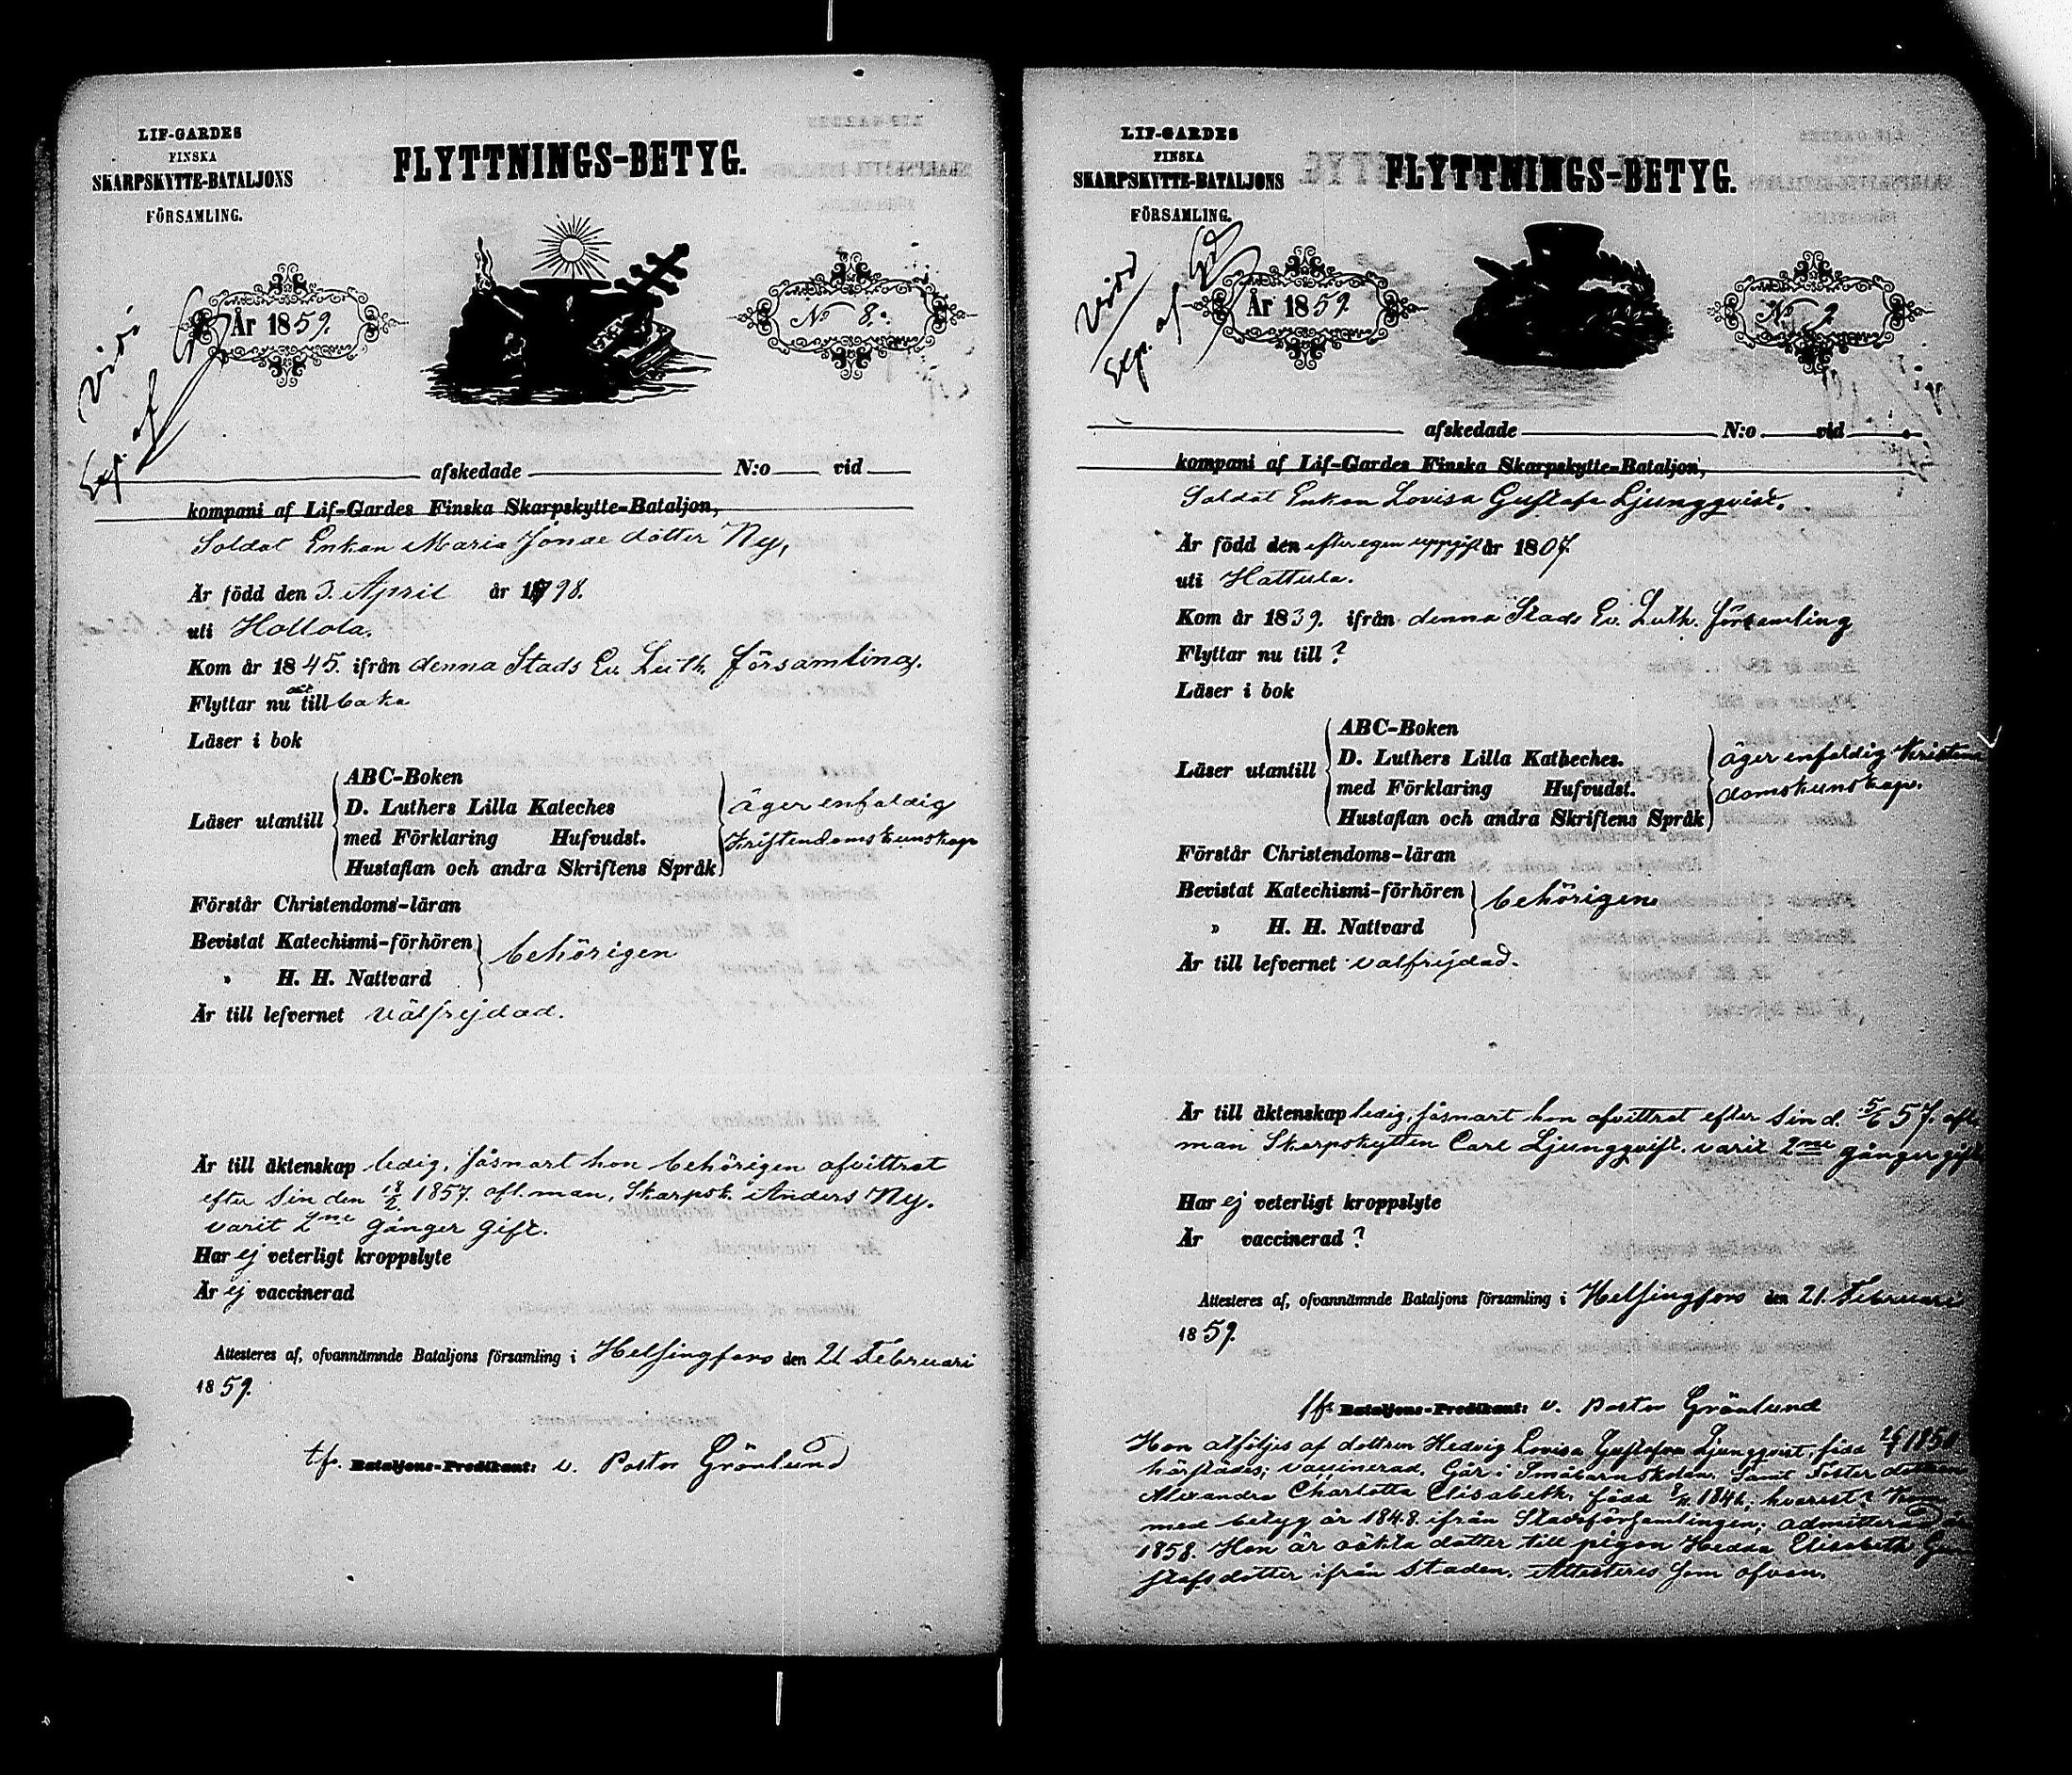 LIF-GARDES
FINSKA
SKARPSKYTTE-BATALJONS
FÖRSAMLING.
FLYTTNINGS-BETYG.
År 1859.
No 8.
Exp. af
afskedade N:o vid
kompani af Lif-Gardes Finska Skarpskytte-Bataljon,
Soldat Enkan Maria Jonae dotter Ny,
Är född den 3. April år 1798.
uti Hollola.
Kom år 1845. ifrån denna Stads Ev. Luth. församling.
Flyttar nu till baka
Läser i bok
Läser utantill
ABC-Boken
D. Luthers Lilla Kateches
med Förklaring Hufvudst.
Hustaflan och andra Skriftens Språk
äger enfaldig
Kristendomskunskap
Förstår Christendoms-läran
Bevistat Katechismi-förhören
" H. H. Nattvard
behörigen
Är till lefvernet välfrejdad.
Är till äktenskap ledig, såsnart hon behörigen afvittrat
efter sin den 18/2 1857. afl. man, Skarpsk. Anders Ny.
varit 2ne gånger gift.
Har ej veterligt kroppslyte
Är ej vaccinerad
Attesteres af, ofvannämnde Bataljons församling i Helsingfors den 21 Februari
1859.
tf. Bataljons-Predikant: v. Pastor Grönlund
LIF-GARDES
FINSKA
SKARPSKYTTE-BATALJONS
FÖRSAMLING.
FLYTTNINGS-BETYG.
År 1859.
No 9.
Exp. af
afskedade N:o vid
kompani af Lif-Gardes Finska Skarpskytte-Bataljon,
Soldat Enkan Lovisa Gustafva Ljungqvist.
Är född den efter egen uppgift år 1807.
uti Hattula.
Kom år 1839. ifrån denna Stads Ev. Luth. församling
Flyttar nu till ?
Läser i bok
Läser utantill
ABC-Boken
D. Luthers Lilla Katheches.
med Förklaring Hufvudst.
Hustaflan och andra Skriftens Språk
äger enfaldig Kristen
domskunskap.
Förstår Christendoms-läran
Bevistat Katechismi-förhören
" H. H. Nattvard
behörigen
Är till lefvernet välfrejdad.
Är till äktenskap ledig, såsnart hon afvittrat efter sin d. 5/6 57. afl.
man Skarpskytten Carl Ljungqvist. varit 2ne gånger gift
Har ej veterligt kroppslyte
Är vaccinerad ?
Attesteres af, ofvannämnde Bataljons församling i Helsingfors den 21. Februari
1859.
tf. Bataljons-Predikant: v. Pastor Grönlund
Hon åtföljes af dottren Hedvig Lovisa Gustafva Ljungqvist, född 1850
härstädes; vaccinerad. Går i Småbarnskolan. Samt Foster dottren
Alexandra Charlotta Elisabeth, född hvarest?
med betyg år 1848. ifrån Stadsförsamlingen; admitterad
1858. Hon är oäkta dotter till pigan Hedda Elisabeth Gu
stafsdotter ifrån staden. Attesteres som ofvan.